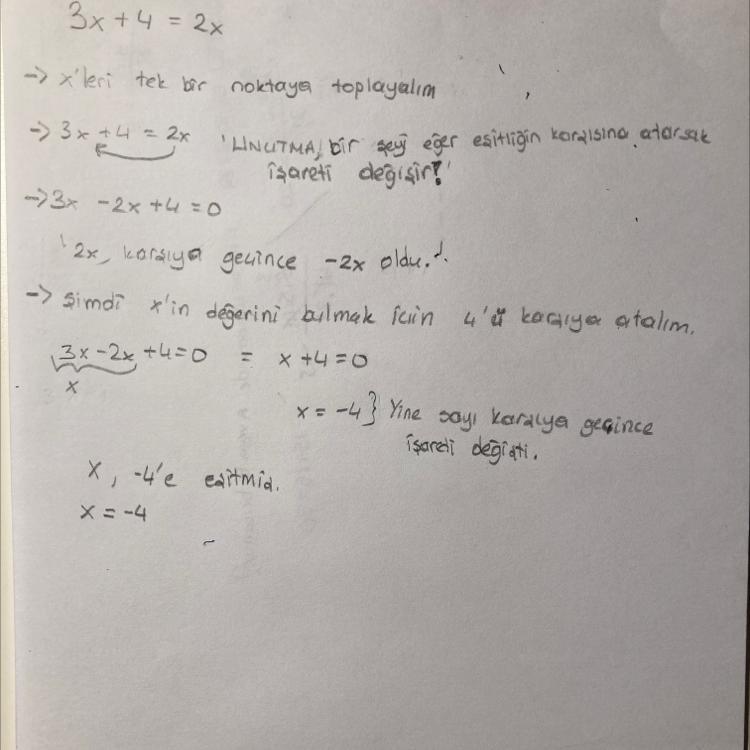 3x + 4 = 2x
-> x'leri tek bir noktaya toplayalım
-> 3x + 4 = 2x 'UNUTMA, bir şeyi eğer eşitliğin karşısına atarsak
işareti değişir!'
-> 3x - 2x + 4 = 0
'2x, karşıya geçince -2x oldu.'
-> Şimdi x'in değerini bulmak için 4'ü karşıya atalım.
3x - 2x + 4 = 0 = x + 4 = 0
x
x = -4 } Yine sayı karşıya geçince
işareti değişti.
x, -4'e eşitmiş.
x = -4